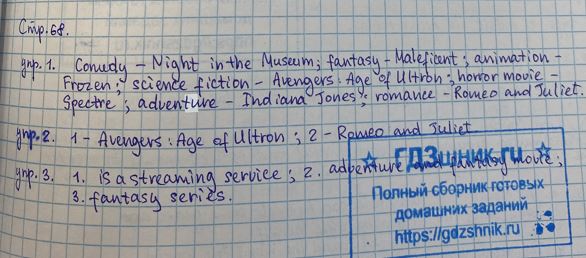 Стр. 68.
упр. 1. Comedy – Night in the Museum; fantasy – Maleficent; animation –
Frozen; science fiction – Avengers: Age of Ultron; horror movie –
Spectre; adventure – Indiana Jones; romance – Romeo and Juliet.
упр. 2. 1 – Avengers: Age of Ultron; 2 – Romeo and Juliet
упр. 3. 1. is a streaming service; 2. adventure and fantasy movie;
3. fantasy series.
ГДЗшник.ru
Полный сборник готовых
домашних заданий
https://gdzshnik.ru